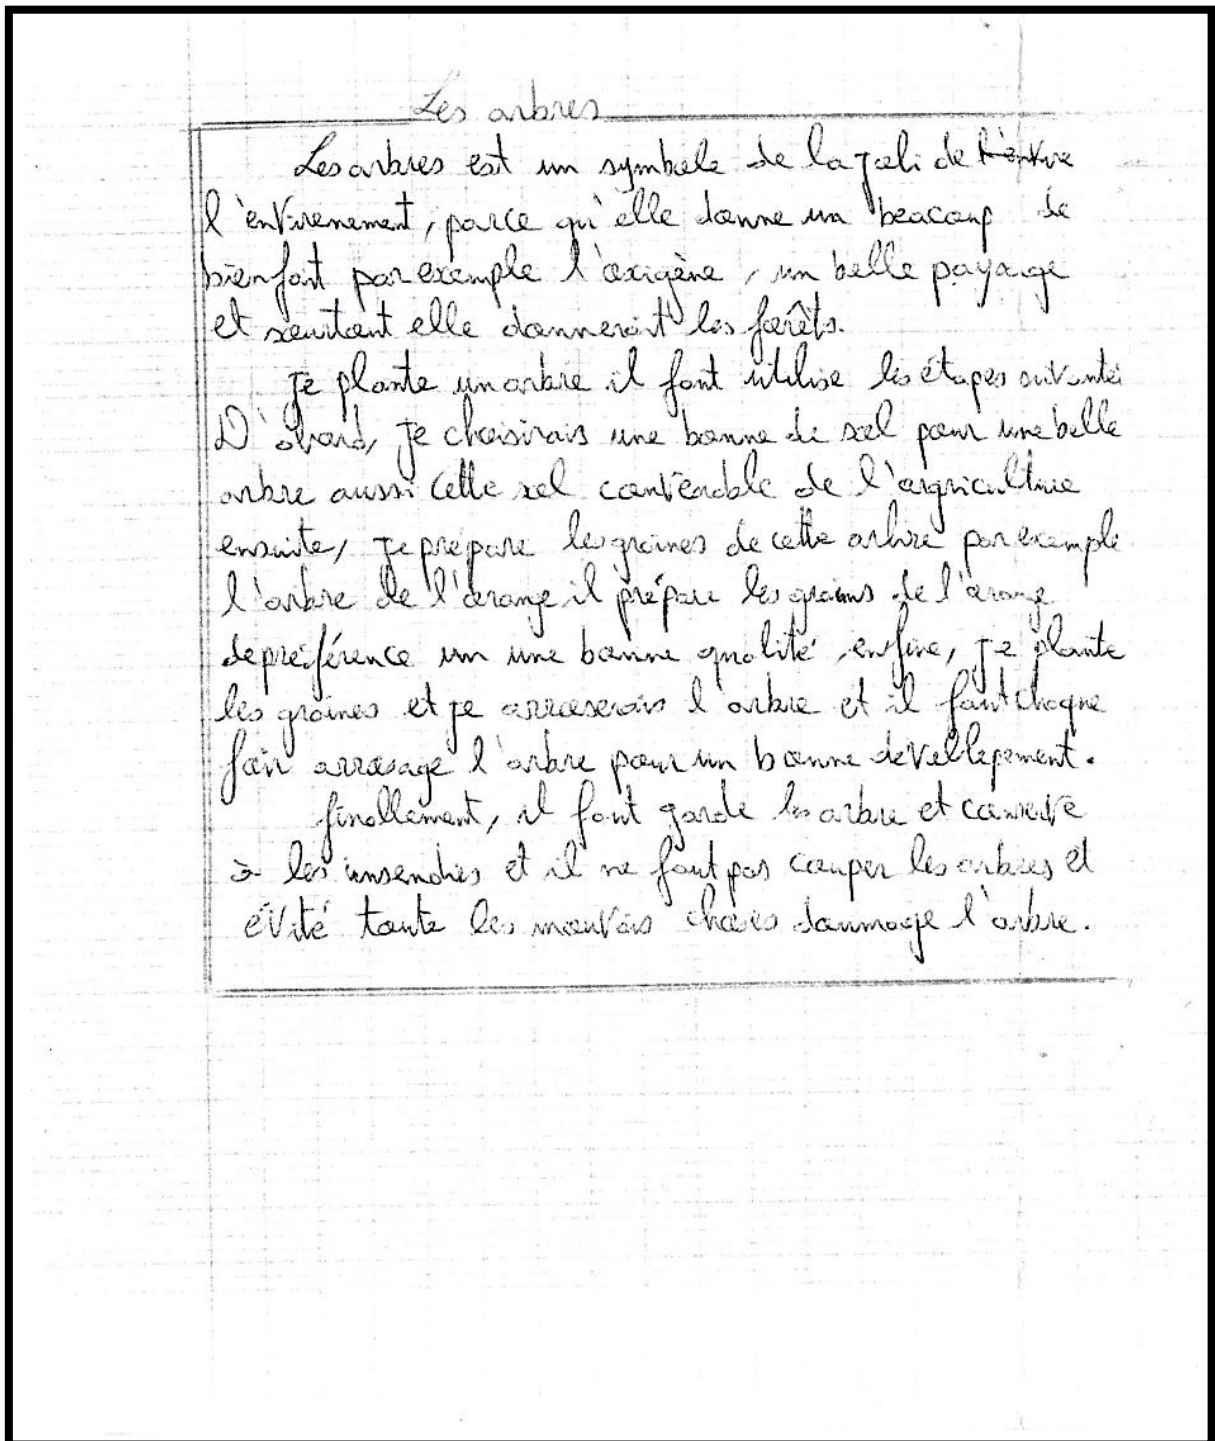 Les arbres
Les arbres est un symbole de la joli de l'entire
l'envirenement, parce qu'elle donne un beacoup de
bienfait par exemple l'oxigène, un belle payage
et soutout elle donneroit les forêts.
Je plante un arbre il faut utilise les étapes suivantes
D'abord, Je choisirais une bonne de sol pour une belle
arbre aussi cette sol convendable de l'argriculture
ensuite, je prépare les graines de cette arbre par exemple
l'arbre de l'orange il prépare les grains de l'orange
de préférence un une bonne qualité, enfine, je plante
les graines et je arroserais l'arbre et il faut chaque
foir arrosage l'arbre pour un bonne dévellepement.
finallement, il faut garde les arbre et conserve
à les insendies et il ne faut pas couper les arbres et
évité toute les mouvais choses dommage l'arbre.